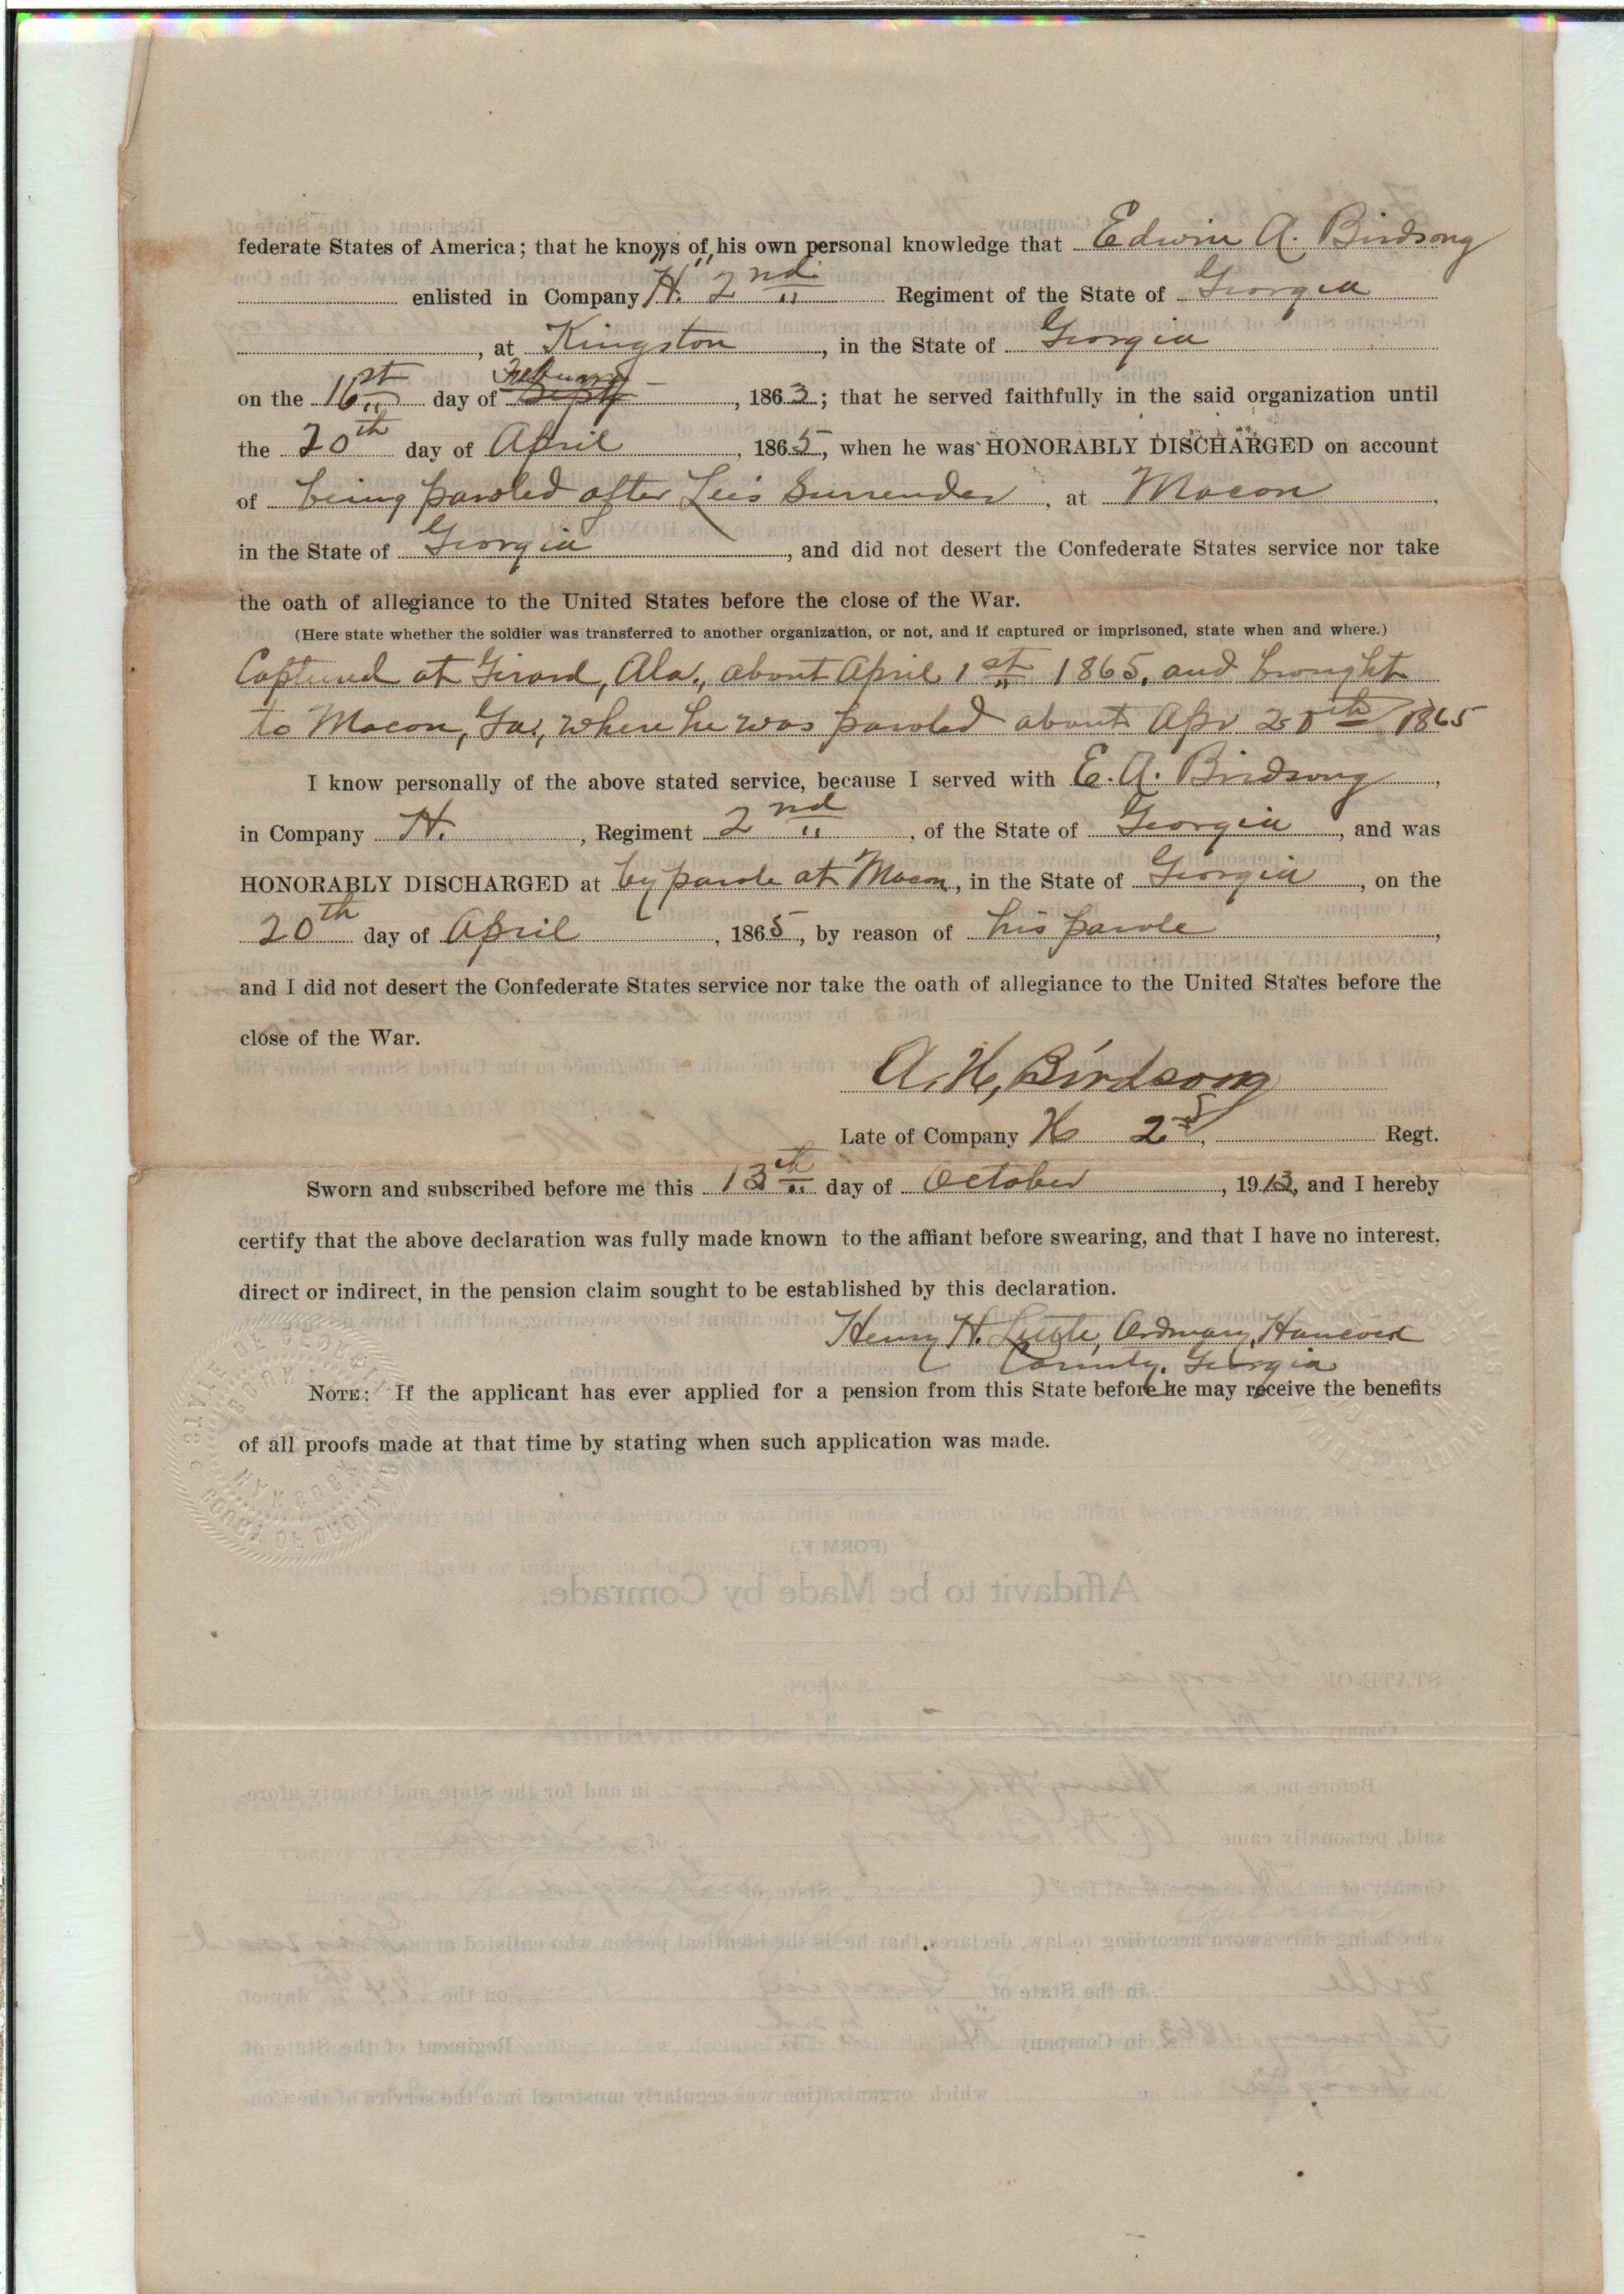 federate States of America; that he knows of his own personal knowledge that Edwin A. Birdsong
enlisted in Company "H." 2nd Regiment of the State of Georgia
, at Kingston, in the State of Georgia
February
on the 16st day of Sept, 1863; that he served faithfully in the said organization until
the 20th day of April, 1865, when he was HONORABLY DISCHARGED on account
of being paroled after Lee's Surrender, at Macon,
in the State of Georgia, and did not desert the Confederate States service nor take
the oath of allegiance to the United States before the close of the War.
(Here state whether the soldier was transferred to another organization, or not, and if captured or imprisoned, state when and where.)
Captured at Girard, Ala., about April 1st 1865, and brought
to Macon, Ga., where he was paroled about Apr 20th 1865
I know personally of the above stated service, because I served with E. A. Birdsong,
in Company H., Regiment 2nd, of the State of Georgia, and was
HONORABLY DISCHARGED at by parole at Macon, in the State of Georgia, on the
20th day of April, 1865, by reason of his parole,
and I did not desert the Confederate States service nor take the oath of allegiance to the United States before the
close of the War.
A. H. Birdsong
Late of Company H 2d Regt.
Sworn and subscribed before me this 13th day of October, 1913, and I hereby
certify that the above declaration was fully made known to the affiant before swearing, and that I have no interest.
direct or indirect, in the pension claim sought to be established by this declaration.
Henry H. Little, Ordinary, Hancock
County, Georgia
NOTE: If the applicant has ever applied for a pension from this State before he may receive the benefits
of all proofs made at that time by stating when such application was made.